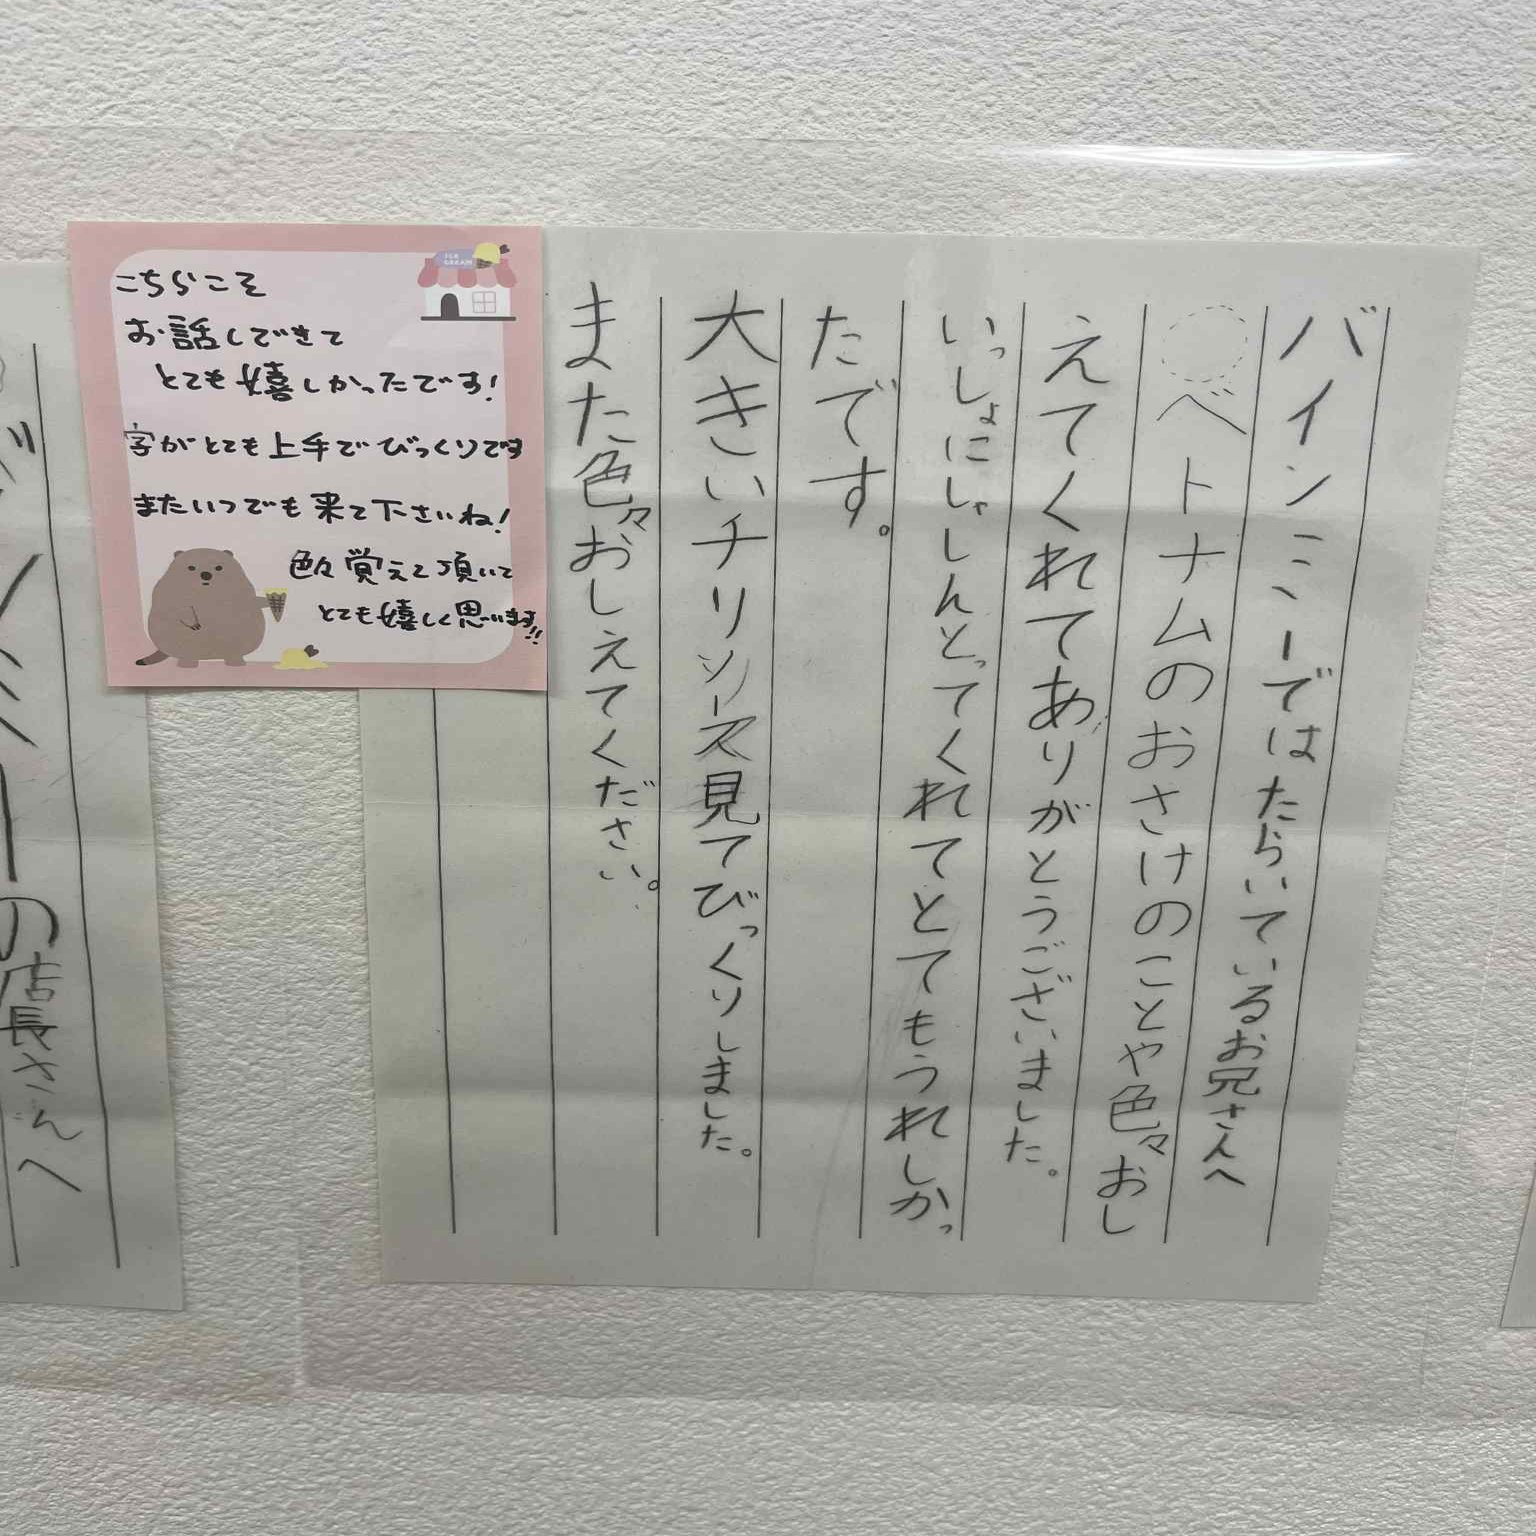 バインミーではたらいているお兄さんへ
ベトナムのおさけのことや色々おし
えてくれてありがとうございました。
いっしょにしゃしんとってくれてとてもうれしかっ
たです。
大きいチリソース見てびっくりしました。
また色々おしえてください。
ICE
CREAM
こちらこそ
お話しできて
とても嬉しかったです!
字がとても上手でびっくりです
またいつでも来て下さいね!
色々覚えて頂いて
とても嬉しく思います!!
ミーの店長さんへ